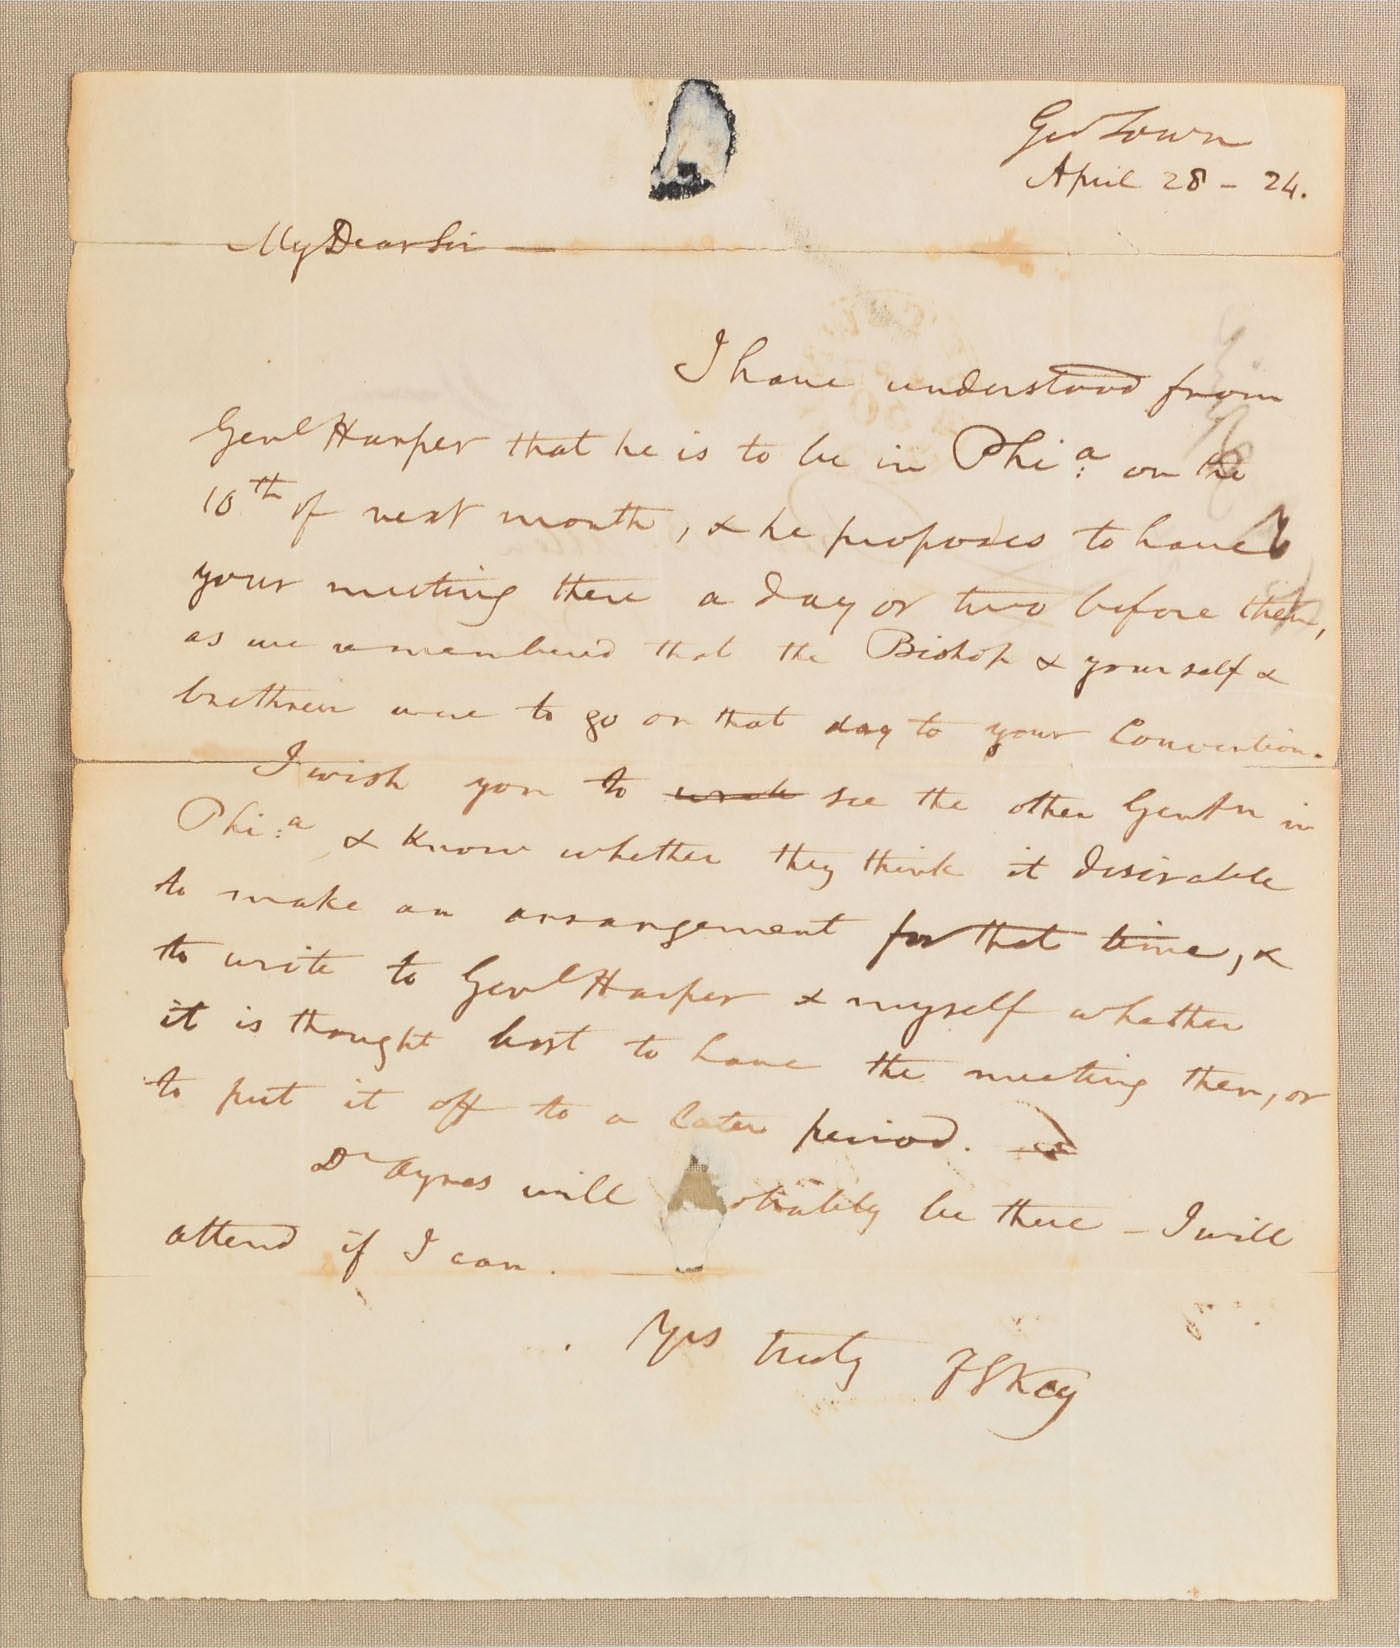 Geo Town
April 28 - 24.
My Dear Sir
I have understood from
Genl Harper that he is to be in Phi:a on the
10th of next month, & he proposes to have
your meeting there a day or two before then,
as we remembered that the Bishop & yourself &
brethren were to go on that day to your Convention.
I wish you to see the other Gentn in
Phi:a & know whether they think it desirable
to make an arrangement for that time, &
to write to Genl Harper & myself whether
it is thought best to have the meeting then, or
to put it off to a later period.
Dr Ayres will obably be there - I will
attend if I can.
Yrs truly F S Key